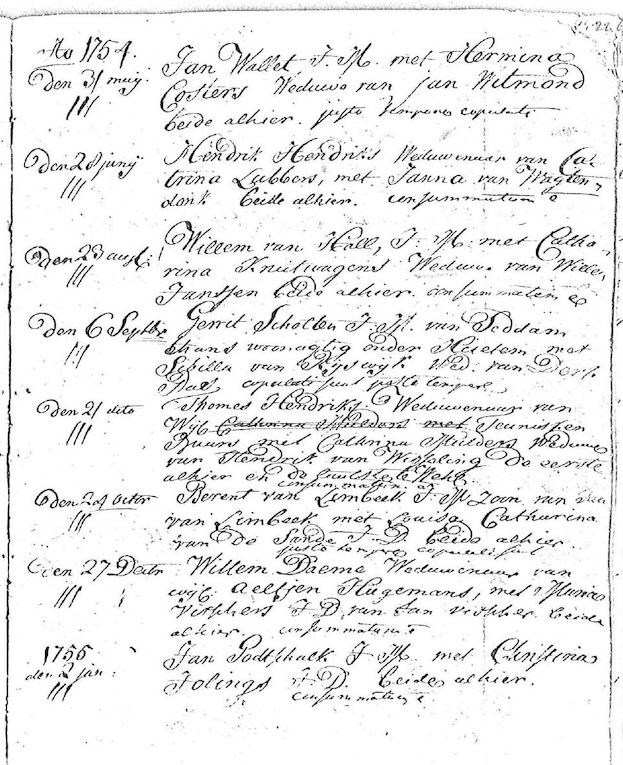 Ao 1754.
Den 31 meij. Jan Wallet J. M. met Hermina
/// Costers Weduwe van Jan Witmond
beide alhier. justo tempore copulati
Den 28 junij Hendrik Hendriks Weduwenaar van Ca-
/// trina Lubbers, met Janna van Wagten-
donk beide alhier. consummatum e
den 23 aug: Willem van Hall, J. M. met Catha-
/// rina Kruitwagens Weduwe van Willem
Janssen beide alhier. consummatum e
den 6 Septbr Gerrit Scholten J. M. van Seddam
/// thans woonagtig onder met
Sibilla van Rijswijk Wed. van Derk
copulati sunt justo tempore
den 21 dito Thomas Hendriks Weduwenaar van
/// Wijl. Catharina Mulders met Teunissen
Buurs met Catharina Mulders Weduwe
van Hendrik van Wisseling de eerste
alhier en de laatste te
consummatum e
den 28 octbr Berent van Limbeek J. M. Zoon van
/// van Limbeek met Louisa Catharina
van De Sande J. D. beide alhier.
justo tempore copulati sunt
den 27 Decbr Willem Daeme Weduwenaar van
/// wijl. Aeltjen Hugemans, met Maria
Visschers J. D. van Jan Visscher beide
alhier. consummatum e
1755 Jan Godtschalk J. M. met Christina
den 2 jan: Jolings J. D. beide alhier.
/// consummatum e